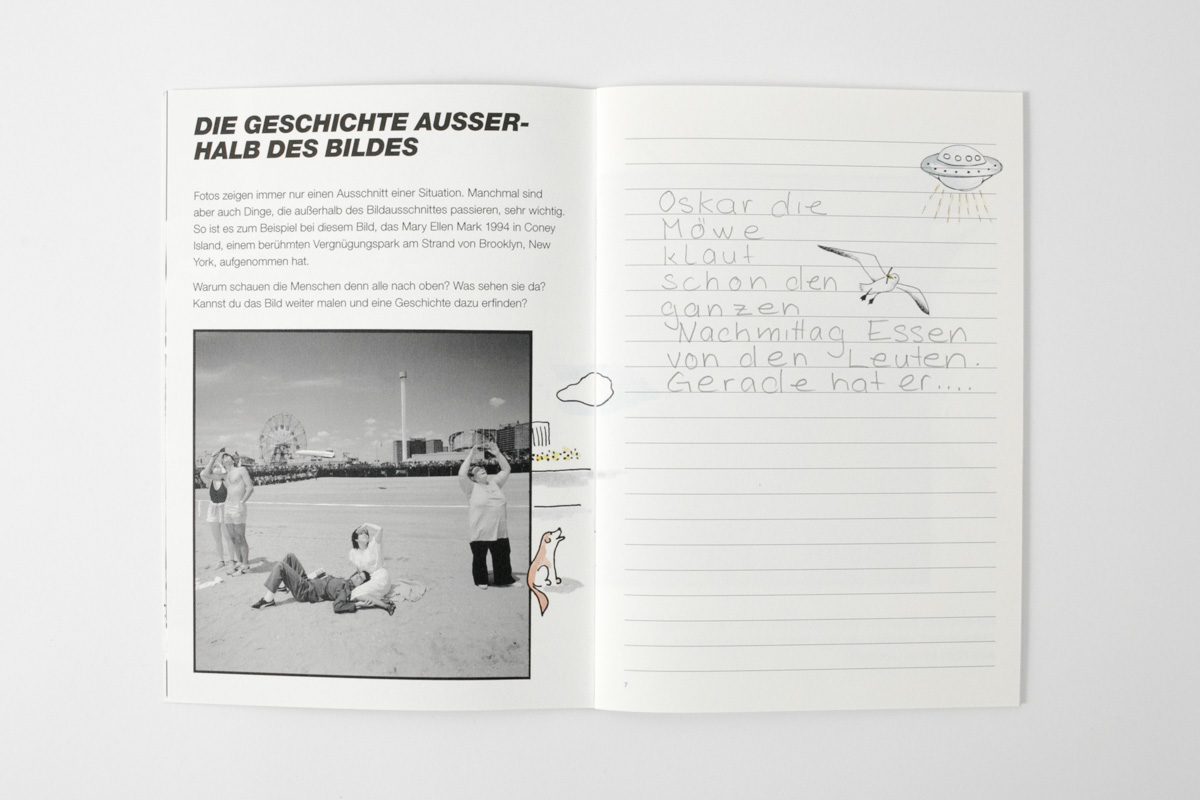 DIE GESCHICHTE AUSSER-
HALB DES BILDES
Fotos zeigen immer nur einen Ausschnitt einer Situation. Manchmal sind
aber auch Dinge, die außerhalb des Bildausschnittes passieren, sehr wichtig.
So ist es zum Beispiel bei diesem Bild, das Mary Ellen Mark 1994 in Coney
Island, einem berühmten Vergnügungspark am Strand von Brooklyn, New
York, aufgenommen hat.
Warum schauen die Menschen denn alle nach oben? Was sehen sie da?
Kannst du das Bild weiter malen und eine Geschichte dazu erfinden?
Oskar die
Möwe
klaut
schon den
ganzen
Nachmittag Essen
von den Leuten.
Gerade hat er....
7